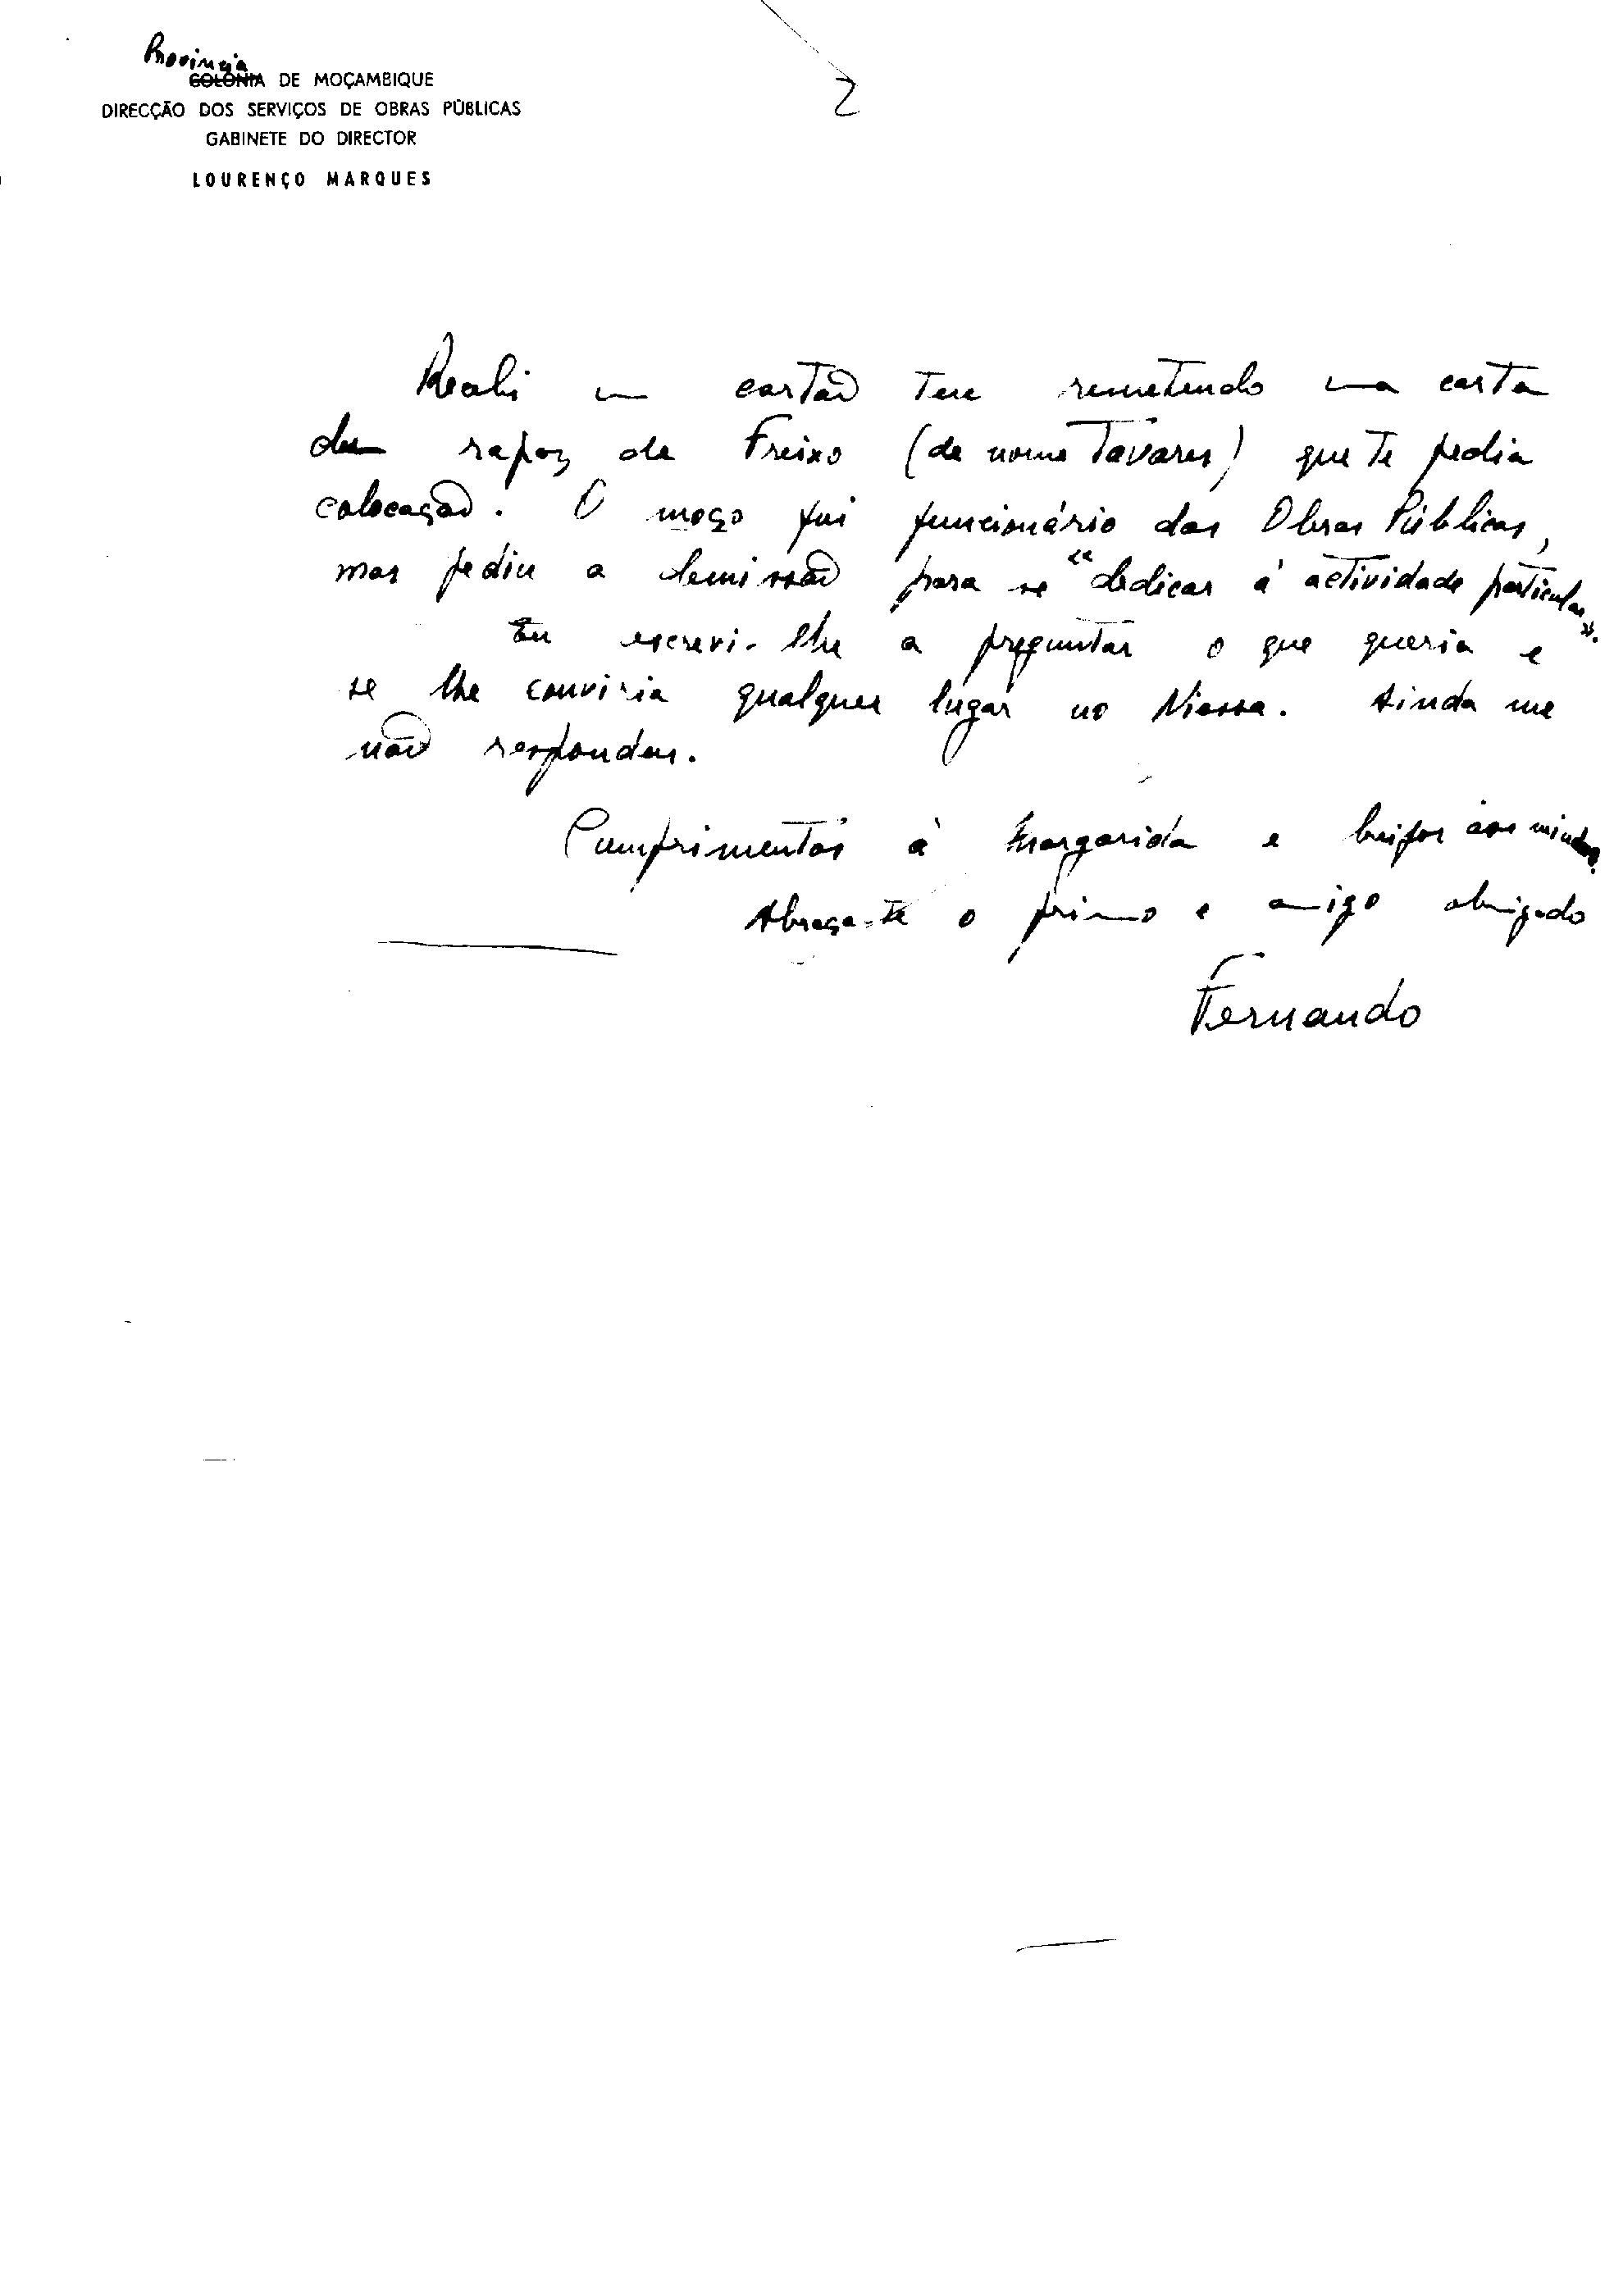 Província
COLÓNIA DE MOÇAMBIQUE
2
DIRECÇÃO DOS SERVIÇOS DE OBRAS PÚBLICAS
GABINETE DO DIRECTOR
LOURENÇO MARQUES
Recebi um cartão teu remetendo uma carta
dum rapaz de Freixo (de nome Tavares) que te pedia
colocação. O moço foi funcionário das Obras Públicas,
mas pediu a demissão para se "dedicar à actividade particular".
Eu escrevi-lhe a preguntar o que queria e
se lhe conviria qualquer lugar no Niassa. Ainda me
não respondeu.
Cumprimentos à Margarida e beijos aos miudos.
Abraça-te o primo e amigo obrigado
Fernando